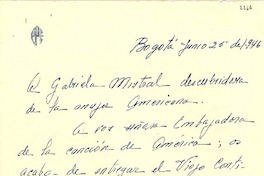 2266
Bogotá Junio 25 de 1946
A Gabriela Mistral descubridora
de la mujer Americana.
A vos señora Embajadora
de la canción de América; os
acabo de entregar el Viejo Conti-